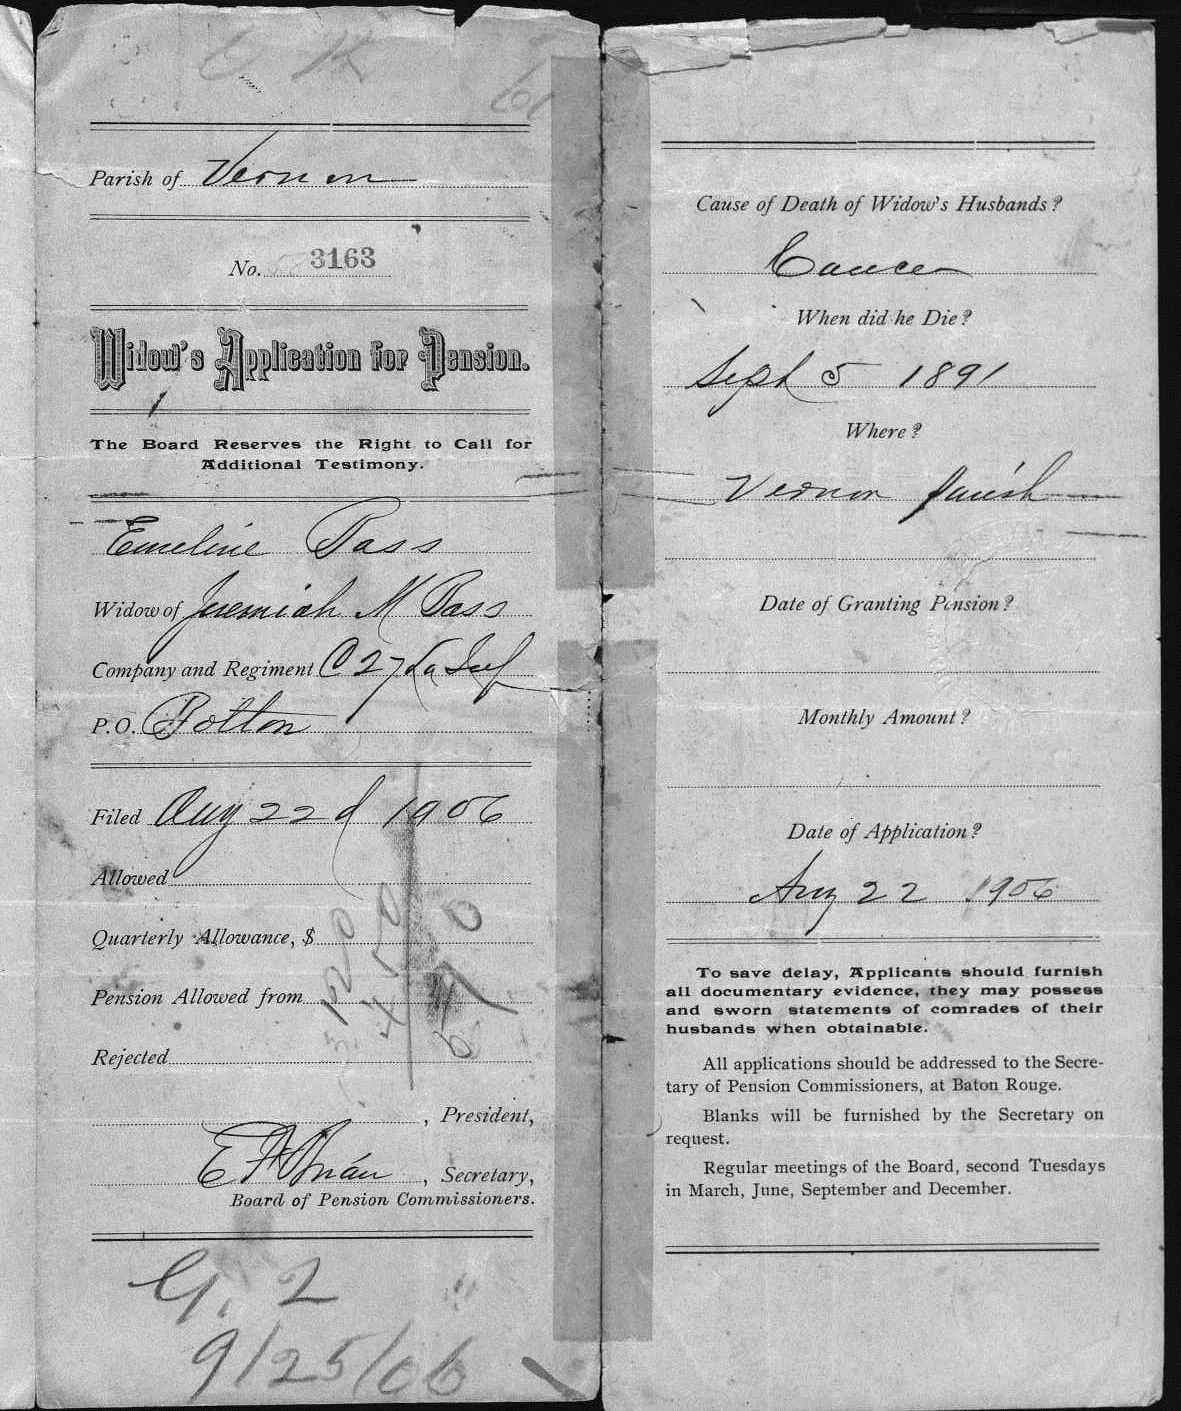 O K
Parish of Vernon
No. 3163
Widow's Application for Pension.
The Board Reserves the Right to Call for
Additional Testimony.
Emeline Pass
Widow of Jeremiah M Pass
Company and Regiment C 27 La Inf
P.O. Bolton
Filed Aug 22d 1906
Allowed
Quarterly Allowance, $
Pension Allowed from
Rejected
1200
450
670
, President,
, Secretary,
Board of Pension Commissioners.
G. 2
9/25/06
Cause of Death of Widow's Husbands?
Cancer
When did he Die?
Sept 5 1891
Where?
Vernon Parish
Date of Granting Pension?
Monthly Amount?
Date of Application?
Aug 22 1906
To save delay, Applicants should furnish
all documentary evidence, they may possess
and sworn statements of comrades of their
husbands when obtainable.
All applications should be addressed to the Secre-
tary of Pension Commissioners, at Baton Rouge.
Blanks will be furnished by the Secretary on
request.
Regular meetings of the Board, second Tuesdays
in March, June, September and December.